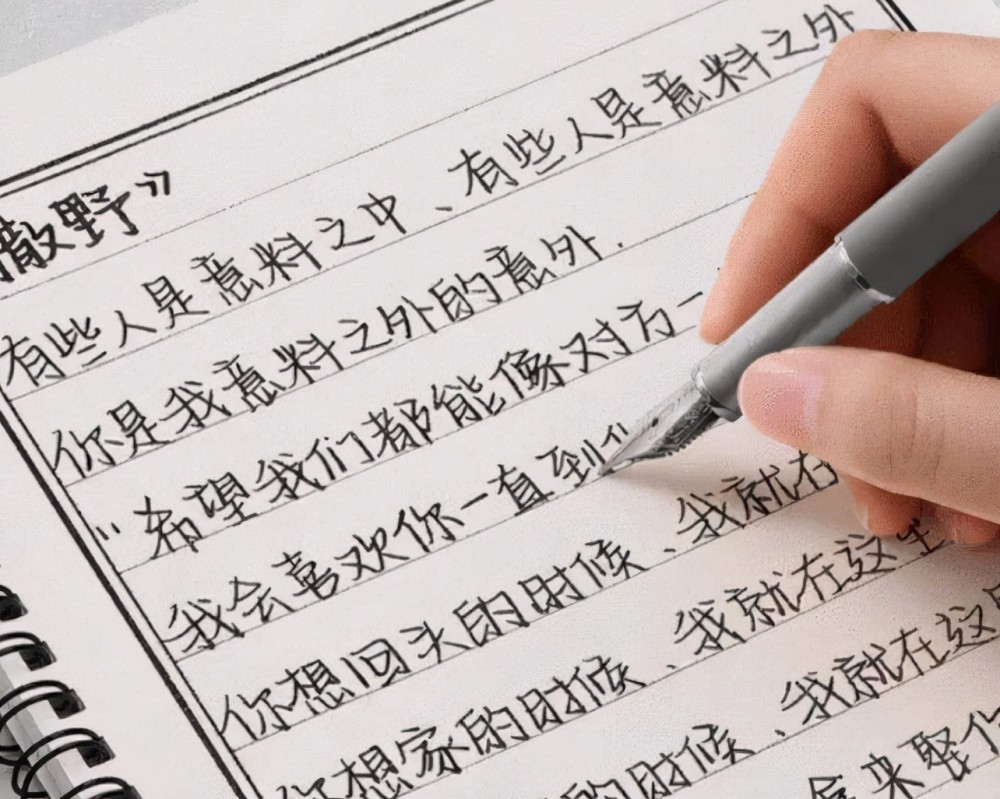 撒野》
有些人是意料之中、有些人是意料之外
你是我意料之外的意外.
"希望我们都能像对方一
我会喜欢你一直到
你想回头的时候、我就在
你想家的时候、我就在这里
的时候、我就在这
来娶你